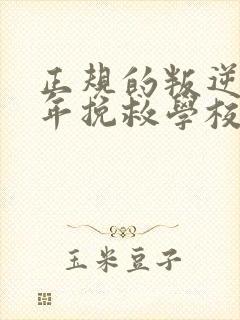 正规的叛逆
年挽救學校
玉米豆子